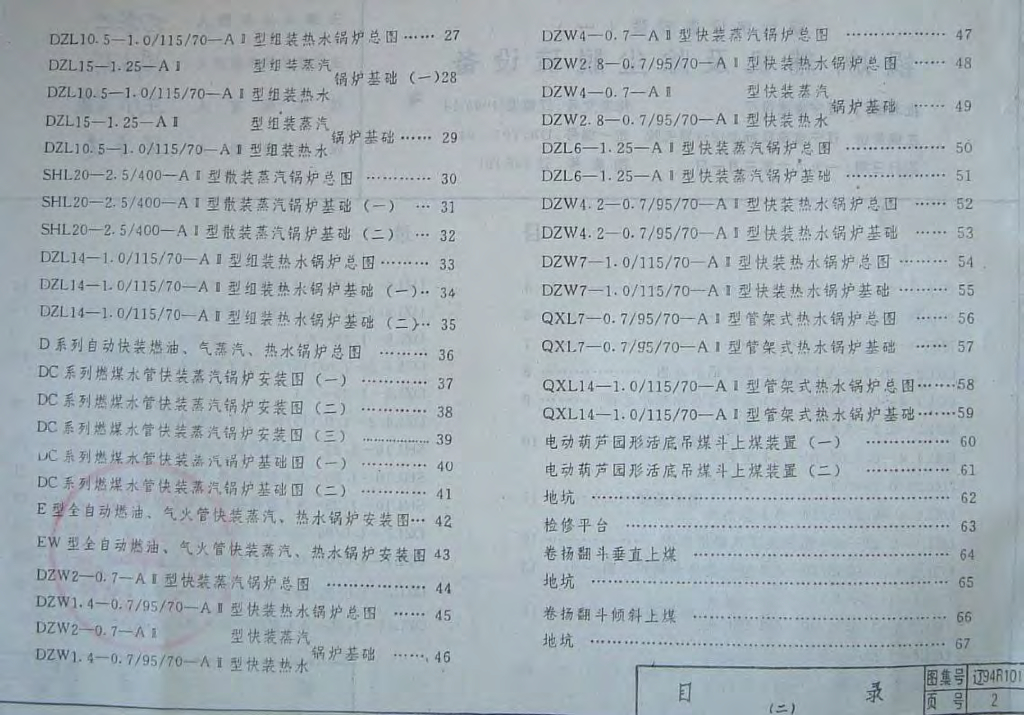 DZL10.5—1.0/115/70—AⅡ型组装热水锅炉总图…… 27
DZL15—1.25—AⅡ 型组装蒸汽
锅炉基础 (一)28
DZL10.5—1.0/115/70—AⅡ型组装热水
DZL15—1.25—AⅡ 型组装蒸汽
锅炉基础…… 29
DZL10.5—1.0/115/70—AⅡ型组装热水
SHL20—2.5/400—AⅡ型散装蒸汽锅炉总图 ………… 30
SHL20—2.5/400—AⅡ型散装蒸汽锅炉基础 (一) … 31
SHL20—2.5/400—AⅡ型散装蒸汽锅炉基础 (二) … 32
DZL14—1.0/115/70—AⅡ型组装热水锅炉总图……… 33
DZL14—1.0/115/70—AⅡ型组装热水锅炉基础 (一)·· 34
DZL14—1.0/115/70—AⅡ型组装热水锅炉基础 (二)·· 35
D系列自动快装燃油、气蒸汽、热水锅炉总图 ………… 36
DC系列燃煤水管快装蒸汽锅炉安装图 (一) ………… 37
DC系列燃煤水管快装蒸汽锅炉安装图 (二) ………… 38
DC系列燃煤水管快装蒸汽锅炉安装图 (三) ………… 39
DC系列燃煤水管快装蒸汽锅炉基础图 (一) ………… 40
DC系列燃煤水管快装蒸汽锅炉基础图 (二) ………… 41
E型全自动燃油、气火管快装蒸汽、热水锅炉安装图… 42
EW型全自动燃油、气火管快装蒸汽、热水锅炉安装图 43
DZW2—0.7—AⅡ型快装蒸汽锅炉总图 ……………… 44
DZW1.4—0.7/95/70—AⅡ型快装热水锅炉总图 …… 45
DZW2—0.7—AⅡ 型快装蒸汽
锅炉基础 …… 46
DZW1.4—0.7/95/70—AⅡ型快装热水
DZW4—0.7—AⅡ型快装蒸汽锅炉总图 ……………… 47
DZW2.8—0.7/95/70—AⅡ型快装热水锅炉总图 …… 48
DZW4—0.7—AⅡ 型快装蒸汽
锅炉基础 …… 49
DZW2.8—0.7/95/70—AⅡ型快装热水
DZL6—1.25—AⅡ型快装蒸汽锅炉总图 ……………… 50
DZL6—1.25—AⅡ型快装蒸汽锅炉基础 ……………… 51
DZW4.2—0.7/95/70—AⅡ型快装热水锅炉总图 …… 52
DZW4.2—0.7/95/70—AⅡ型快装热水锅炉基础 …… 53
DZW7—1.0/115/70—AⅡ型快装热水锅炉总图……… 54
DZW7—1.0/115/70—AⅡ型快装热水锅炉基础……… 55
QXL7—0.7/95/70—AⅡ型管架式热水锅炉总图 …… 56
QXL7—0.7/95/70—AⅡ型管架式热水锅炉基础 …… 57
QXL14—1.0/115/70—AⅡ型管架式热水锅炉总图……58
QXL14—1.0/115/70—AⅡ型管架式热水锅炉基础……59
电动葫芦园形活底吊煤斗上煤装置 (一) …………… 60
电动葫芦园形活底吊煤斗上煤装置 (二) …………… 61
地坑 ………………………………………………… 62
检修平台 …………………………………………… 63
卷扬翻斗垂直上煤 ………………………………… 64
地坑 ………………………………………………… 65
卷扬翻斗倾斜上煤 ………………………………… 66
地坑 ………………………………………………… 67
目 录
(二)
图集号 辽94R101
页 号 2